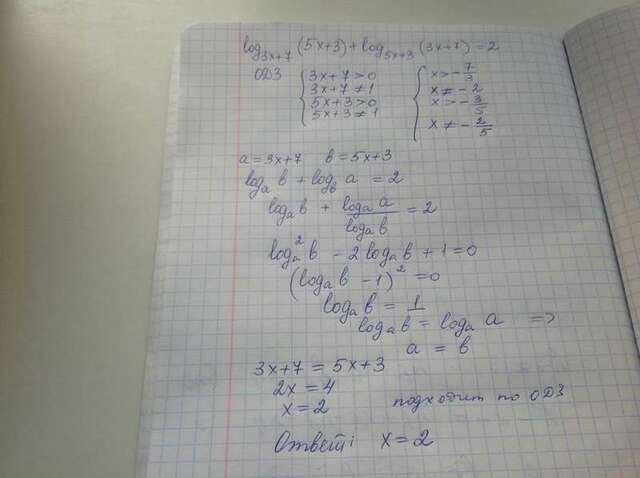 log₃ₓ₊₇(5x+3)+log₅ₓ₊₃(3x+7)=2
ОДЗ { 3x+7>0 { x>-7/3
3x+7≠1 x≠-2
5x+3>0 x>-3/5
5x+3≠1 x≠-2/5
a=3x+7 b=5x+3
logₐb+log_b a=2
logₐb + logₐa/logₐb =2
logₐ²b -2logₐb+1=0
(logₐb -1)²=0
logₐb = 1
logₐb = logₐa =>
a = b
3x+7=5x+3
2x=4
x=2 подходит по ОДЗ
Ответ: x=2